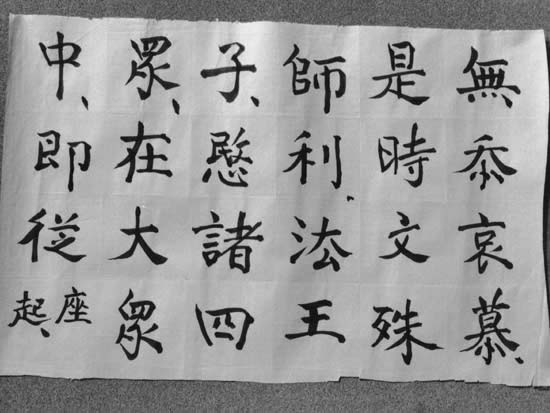 無忝哀慕、
是時文殊
師利法王
子、愍諸四
眾、在大眾
中、即從座起、